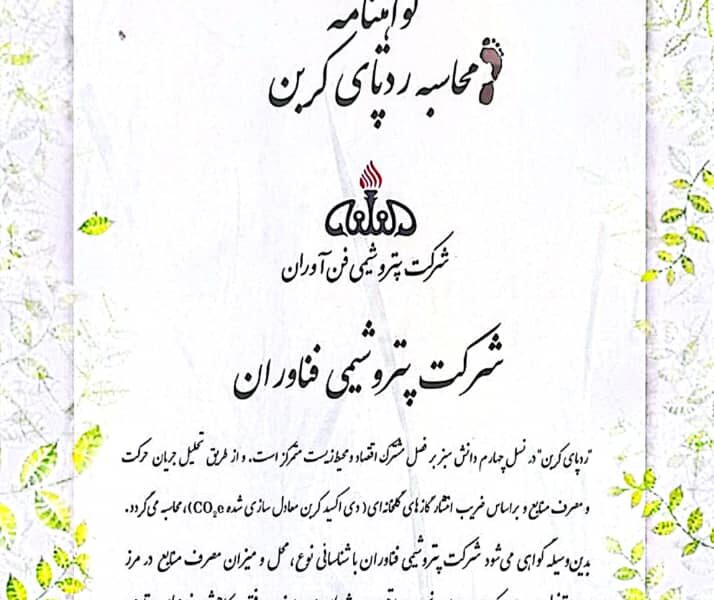 گواهینامه
محاسبه ردپای کربن
شرکت پتروشیمی فن آوران
شرکت پتروشیمی فناوران
"ردپای کربن" در نسل چهارم دانش سبز بر فصل مشترک اقتصاد و محیط زیست متمرکز است. و از طریق تحلیل جریان حرکت
و مصرف منابع و براساس ضریب انتشار گازهای گلخانه‌ای (دی اکسید کربن معادل سازی شده CO₂e))، محاسبه می‌گردد.
بدین‌وسیله گواهی می‌شود شرکت پتروشیمی فناوران با شناسائی نوع، محل و میزان مصرف منابع در مرز